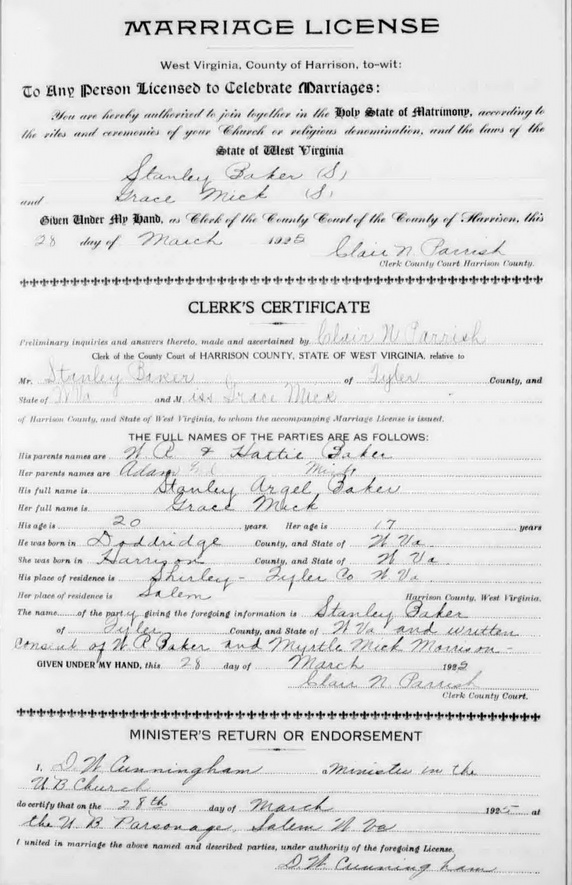 MARRIAGE LICENSE
West Virginia, County of Harrison, to-wit:
To Any Person Licensed to Celebrate Marriages:
You are hereby authorized to join together in the Holy State of Matrimony, according to
the rites and ceremonies of your Church or religious denomination, and the laws of the
State of West Virginia
Stanley Baker (S)
and Grace Mick (S)
Given Under My Hand, as Clerk of the County Court of the County of Harrison, this
28 day of March 1925
Clair N. Parrish
Clerk County Court Harrison County.
CLERK'S CERTIFICATE
Preliminary inquiries and answers thereto, made and ascertained by Clair N Parrish
Clerk of the County Court of HARRISON COUNTY, STATE OF WEST VIRGINIA, relative to
Mr. Stanley Baker of Tyler County, and
State of W Va and Miss Grace Mick
of Harrison County, and State of West Virginia, to whom the accompanying Marriage License is issued.
THE FULL NAMES OF THE PARTIES ARE AS FOLLOWS:
His parents names are W. P. & Hattie Baker
Her parents names are Adam Mick
His full name is Stanley Argel Baker
Her full name is Grace Mick
His age is 20 years. Her age is 17 years
He was born in Doddridge County, and State of W Va.
She was born in Harrison County, and State of W Va.
His place of residence is Shirley - Tyler Co W Va
Her place of residence is Salem Harrison County, West Virginia.
The name of the party giving the foregoing information is Stanley Baker
of Tyler County, and State of W Va and written
Consent of W. P. Baker and Myrtle Mick Morrison -
GIVEN UNDER MY HAND, this 28 day of March 1925
Clair N. Parrish
Clerk County Court.
MINISTER'S RETURN OR ENDORSEMENT
I, D. W. Cunningham a Minister in the
U B Church
do certify that on the 28th day of March 1925 at
the U. B Parsonage, Salem W Va
I united in marriage the above named and described parties, under authority of the foregoing License.
D. W. Cunningham